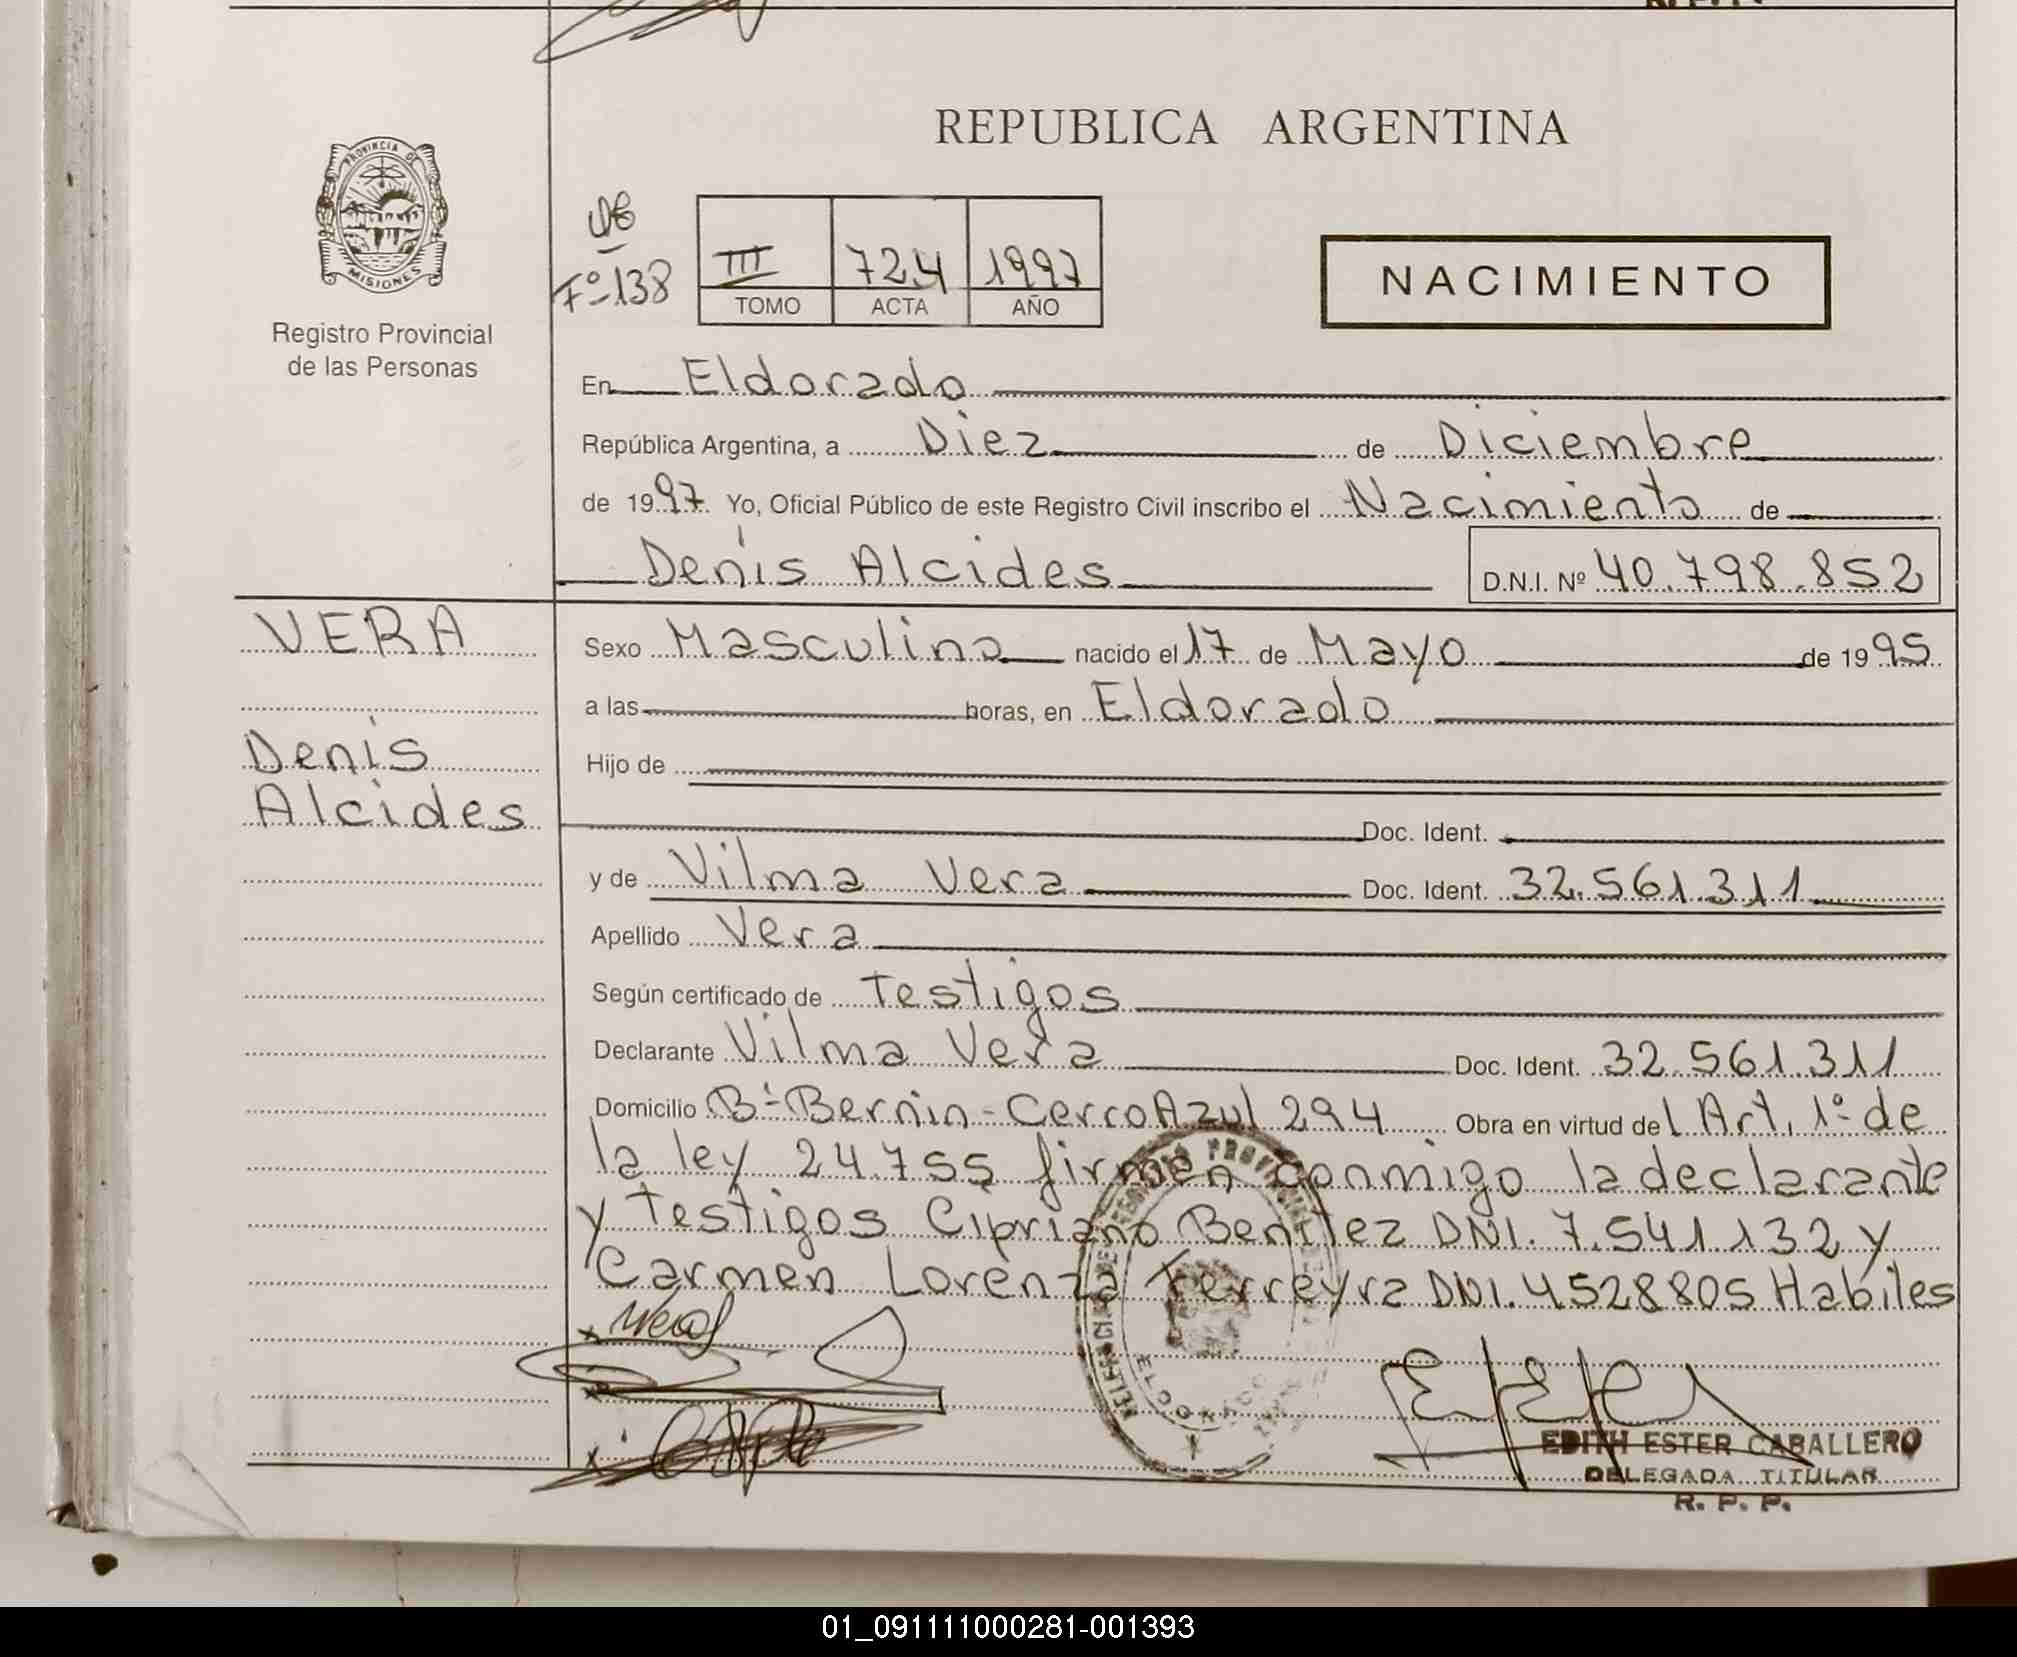 REPUBLICA ARGENTINA
PROVINCIA DE
MISIONES
Registro Provincial
de las Personas
Fº 138
III 724 1997
TOMO ACTA AÑO
NACIMIENTO
En Eldorado
República Argentina, a Diez de Diciembre
de 1997. Yo, Oficial Público de este Registro Civil inscribo el Nacimiento de
Denis Alcides D.N.I. Nº 40.798.852
VERA
Denis
Alcides
Sexo Masculino nacido el 17 de Mayo de 1995
a las horas, en Eldorado
Hijo de
Doc. Ident.
y de Vilma Vera Doc. Ident. 32.561.311
Apellido Vera
Según certificado de Testigos
Declarante Vilma Vera Doc. Ident. 32.561.311
Domicilio Bº Bernin - Cerro Azul 294 Obra en virtud del Art. 1º de
la ley 24.755 firmen conmigo la declarante
y Testigos Cipriano Benitez DNI. 7.541.132 y
Carmen Lorenza Ferreyra DNI. 4528805 Habiles
EDITH ESTER CABALLERO
DELEGADA TITULAR
R. P. P.
01_091111000281-001393